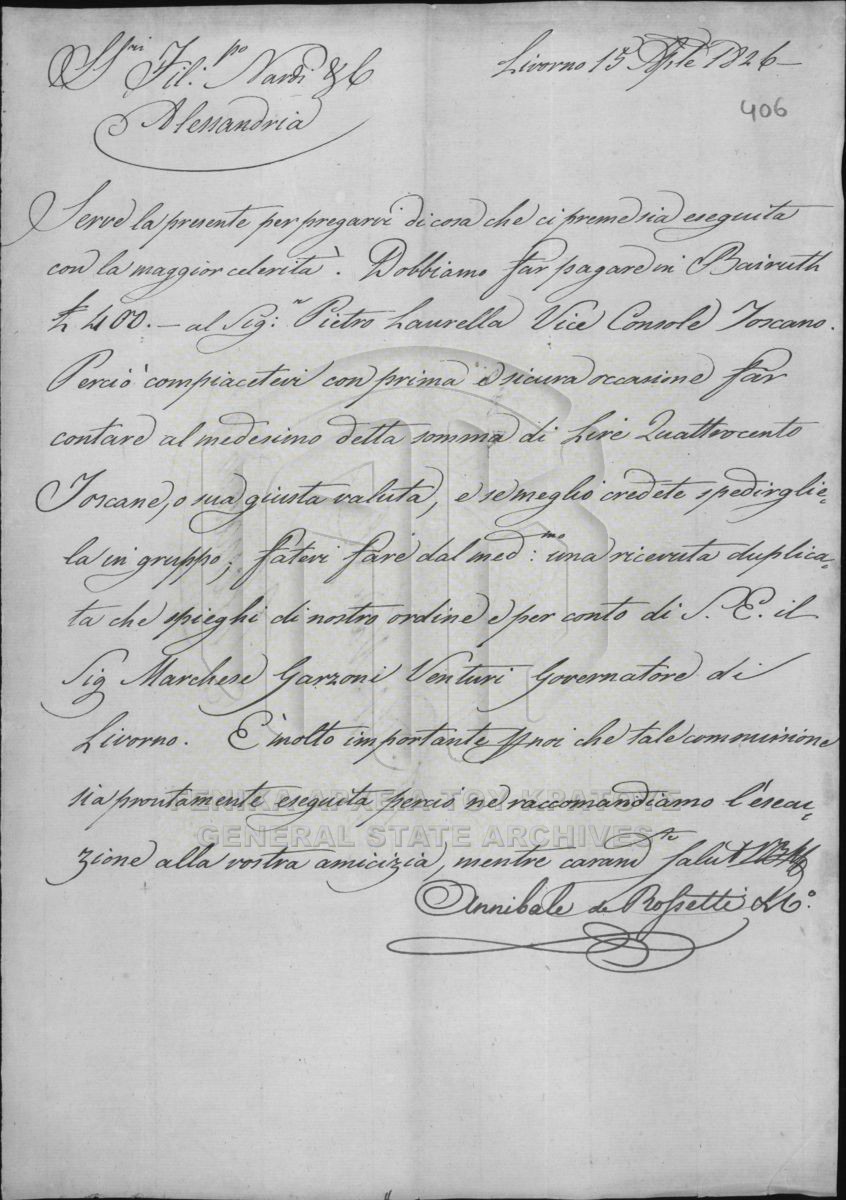 SSri Fil:po Nardi & C
Livorno 15 Aple 1826
406
Alessandria
Serve la presente per pregarvi di cosa che ci preme sia eseguita
con la maggior celerità. Dobbiamo far pagare in Bairuth
£ 400.— al Sig:r Pietro Laurella Vice Console Toscano.
Perciò compiacetevi con prima e sicura occasione far
contare al medesimo detta somma di Lire Quattrocento
Toscane, o sua giusta valuta, e se meglio credete spedirglie-
la in gruppo; fatevi fare dal med:mo una ricevuta duplica-
ta che spieghi di nostro ordine e per conto di S. E. il
Sig Marchese Garzoni Venturi Governatore di
Livorno. È molto importante p noi che tale commissione
sia prontamente eseguita perciò ne raccomandiamo l'esecu-
zione alla vostra amicizia, mentre caramte
Annibale de Rossetti & Co.
ΓΕΝΙΚΑ ΑΡΧΕΙΑ ΤΟΥ ΚΡΑΤΟΥΣ
GENERAL STATE ARCHIVES